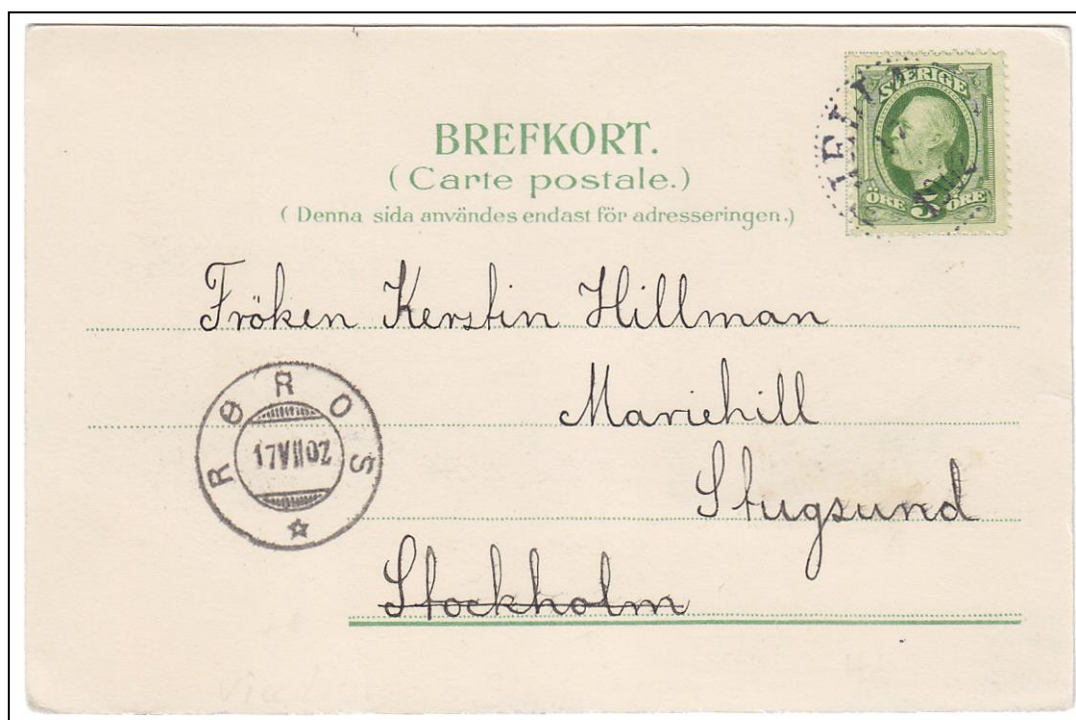 BREFKORT.
(Carte postale.)
(Denna sida användes endast för adresseringen.)
SVERIGE
ÖRE 5 ÖRE
Fröken Kerstin Hillman
Mariehill
Stugsund
Stockholm
RØROS
17VII02